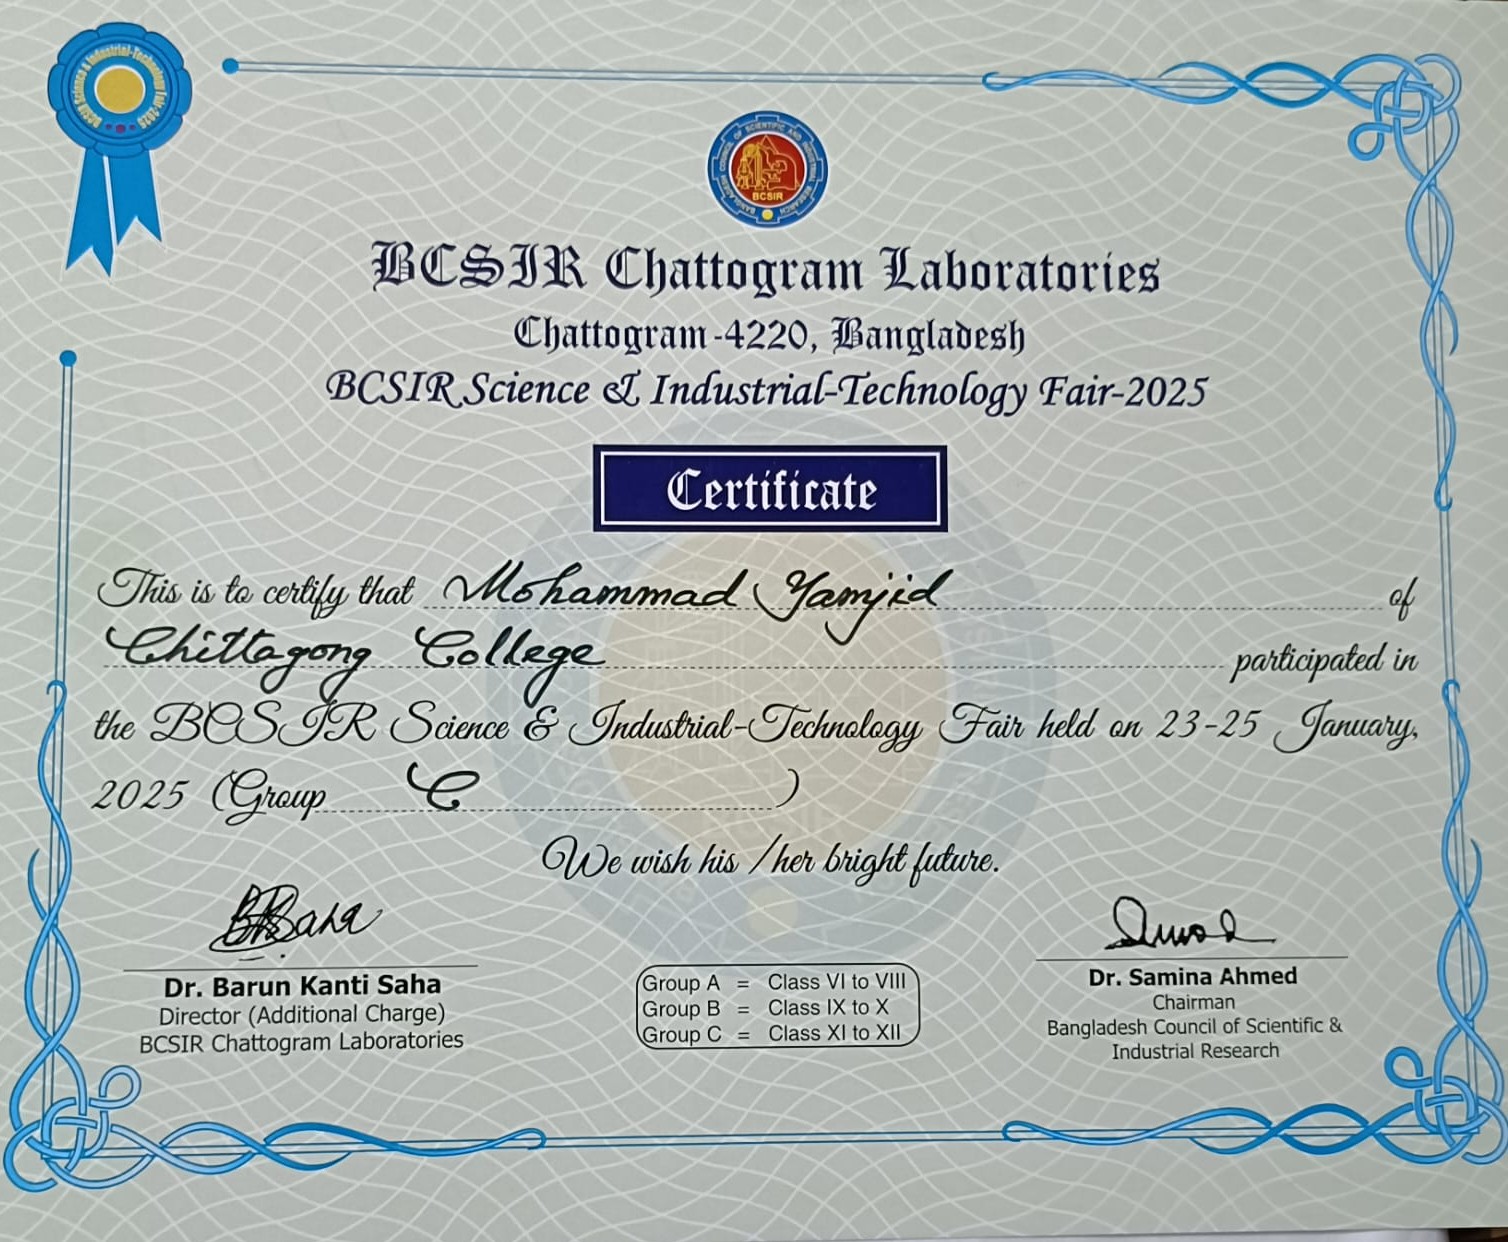 BCSIR Science & Industrial-Technology Fair-2025
BANGLADESH COUNCIL OF SCIENTIFIC AND INDUSTRIAL RESEARCH
BCSIR
BCSIR Chattogram Laboratories
Chattogram-4220, Bangladesh
BCSIR Science & Industrial-Technology Fair-2025
Certificate
This is to certify that Mohammad Yamjid of
Chittagong College participated in
the BCSIR Science & Industrial-Technology Fair held on 23-25 January,
2025 (Group C )
We wish his /her bright future.
BKSaha
Dr. Barun Kanti Saha
Director (Additional Charge)
BCSIR Chattogram Laboratories
Group A = Class VI to VIII
Group B = Class IX to X
Group C = Class XI to XII
Dr. Samina Ahmed
Chairman
Bangladesh Council of Scientific &
Industrial Research